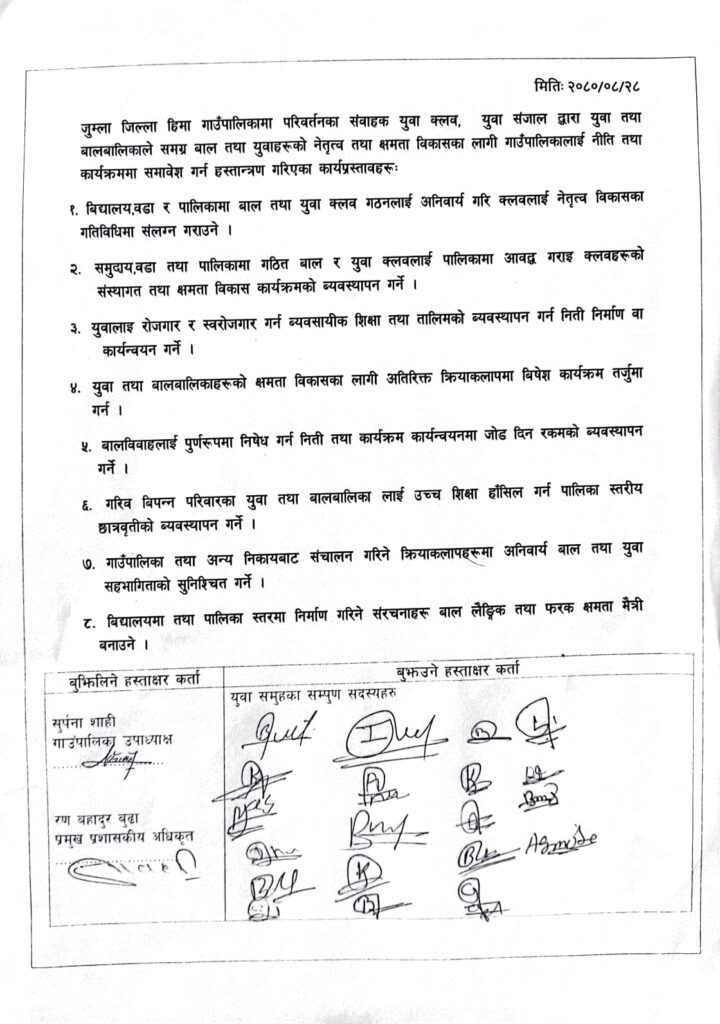 मितिः २०८०/०८/२८
जुम्ला जिल्ला हिमा गाउँपालिकामा परिवर्तनका संवाहक युवा क्लव, युवा संजाल द्वारा युवा तथा
बालबालिकाले समग्र बाल तथा युवाहरूको नेतृत्व तथा क्षमता विकासका लागी गाउँपालिकालाई नीति तथा
कार्यक्रममा समावेश गर्न हस्तान्त्रण गरिएका कार्यप्रस्तावहरूः
१. बिद्यालय,वडा र पालिकामा बाल तथा युवा क्लव गठनलाई अनिवार्य गरि क्लवलाई नेतृत्व विकासका
गतिविधिमा संलग्न गराउने ।
२. समुदाय,वडा तथा पालिकामा गठित बाल र युवा क्लवलाई पालिकामा आवद्ध गराइ क्लवहरूको
संस्थागत तथा क्षमता विकास कार्यक्रमको ब्यवस्थापन गर्ने ।
३. युवालाइ रोजगार र स्वरोजगार गर्न ब्यवसायीक शिक्षा तथा तालिमको ब्यवस्थापन गर्न निती निर्माण वा
कार्यन्वयन गर्ने ।
४. युवा तथा बालबालिकाहरूको क्षमता विकासका लागी अतिरिक्त क्रियाकलापमा बिषेश कार्यक्रम तर्जुमा
गर्न ।
५. बालविवाहलाई पुर्णरूपमा निषेध गर्न निती तथा कार्यक्रम कार्यन्वयनमा जोड दिन रकमको ब्यवस्थापन
गर्ने ।
६. गरिव बिपन्न परिवारका युवा तथा बालबालिका लाई उच्च शिक्षा हाँसिल गर्न पालिका स्तरीय
छात्रवृतीको ब्यवस्थापन गर्ने ।
७. गाउँपालिका तथा अन्य निकायबाट संचालन गरिने क्रियाकलापहरूमा अनिवार्य बाल तथा युवा
सहभागिताको सुनिश्चित गर्ने ।
८. बिद्यालयमा तथा पालिका स्तरमा निर्माण गरिने संरचनाहरू बाल लैङ्गिक तथा फरक क्षमता मैत्री
बनाउने ।
बुझिलिने हस्ताक्षर कर्ता
बुझउने हस्ताक्षर कर्ता
युवा समुहका सम्पुण सदस्यहरु
सुपंना शाही
गाउँपालिका उपाध्यक्ष
रण बहादुर बुढा
प्रमुख प्रशासकीय अधिकृत